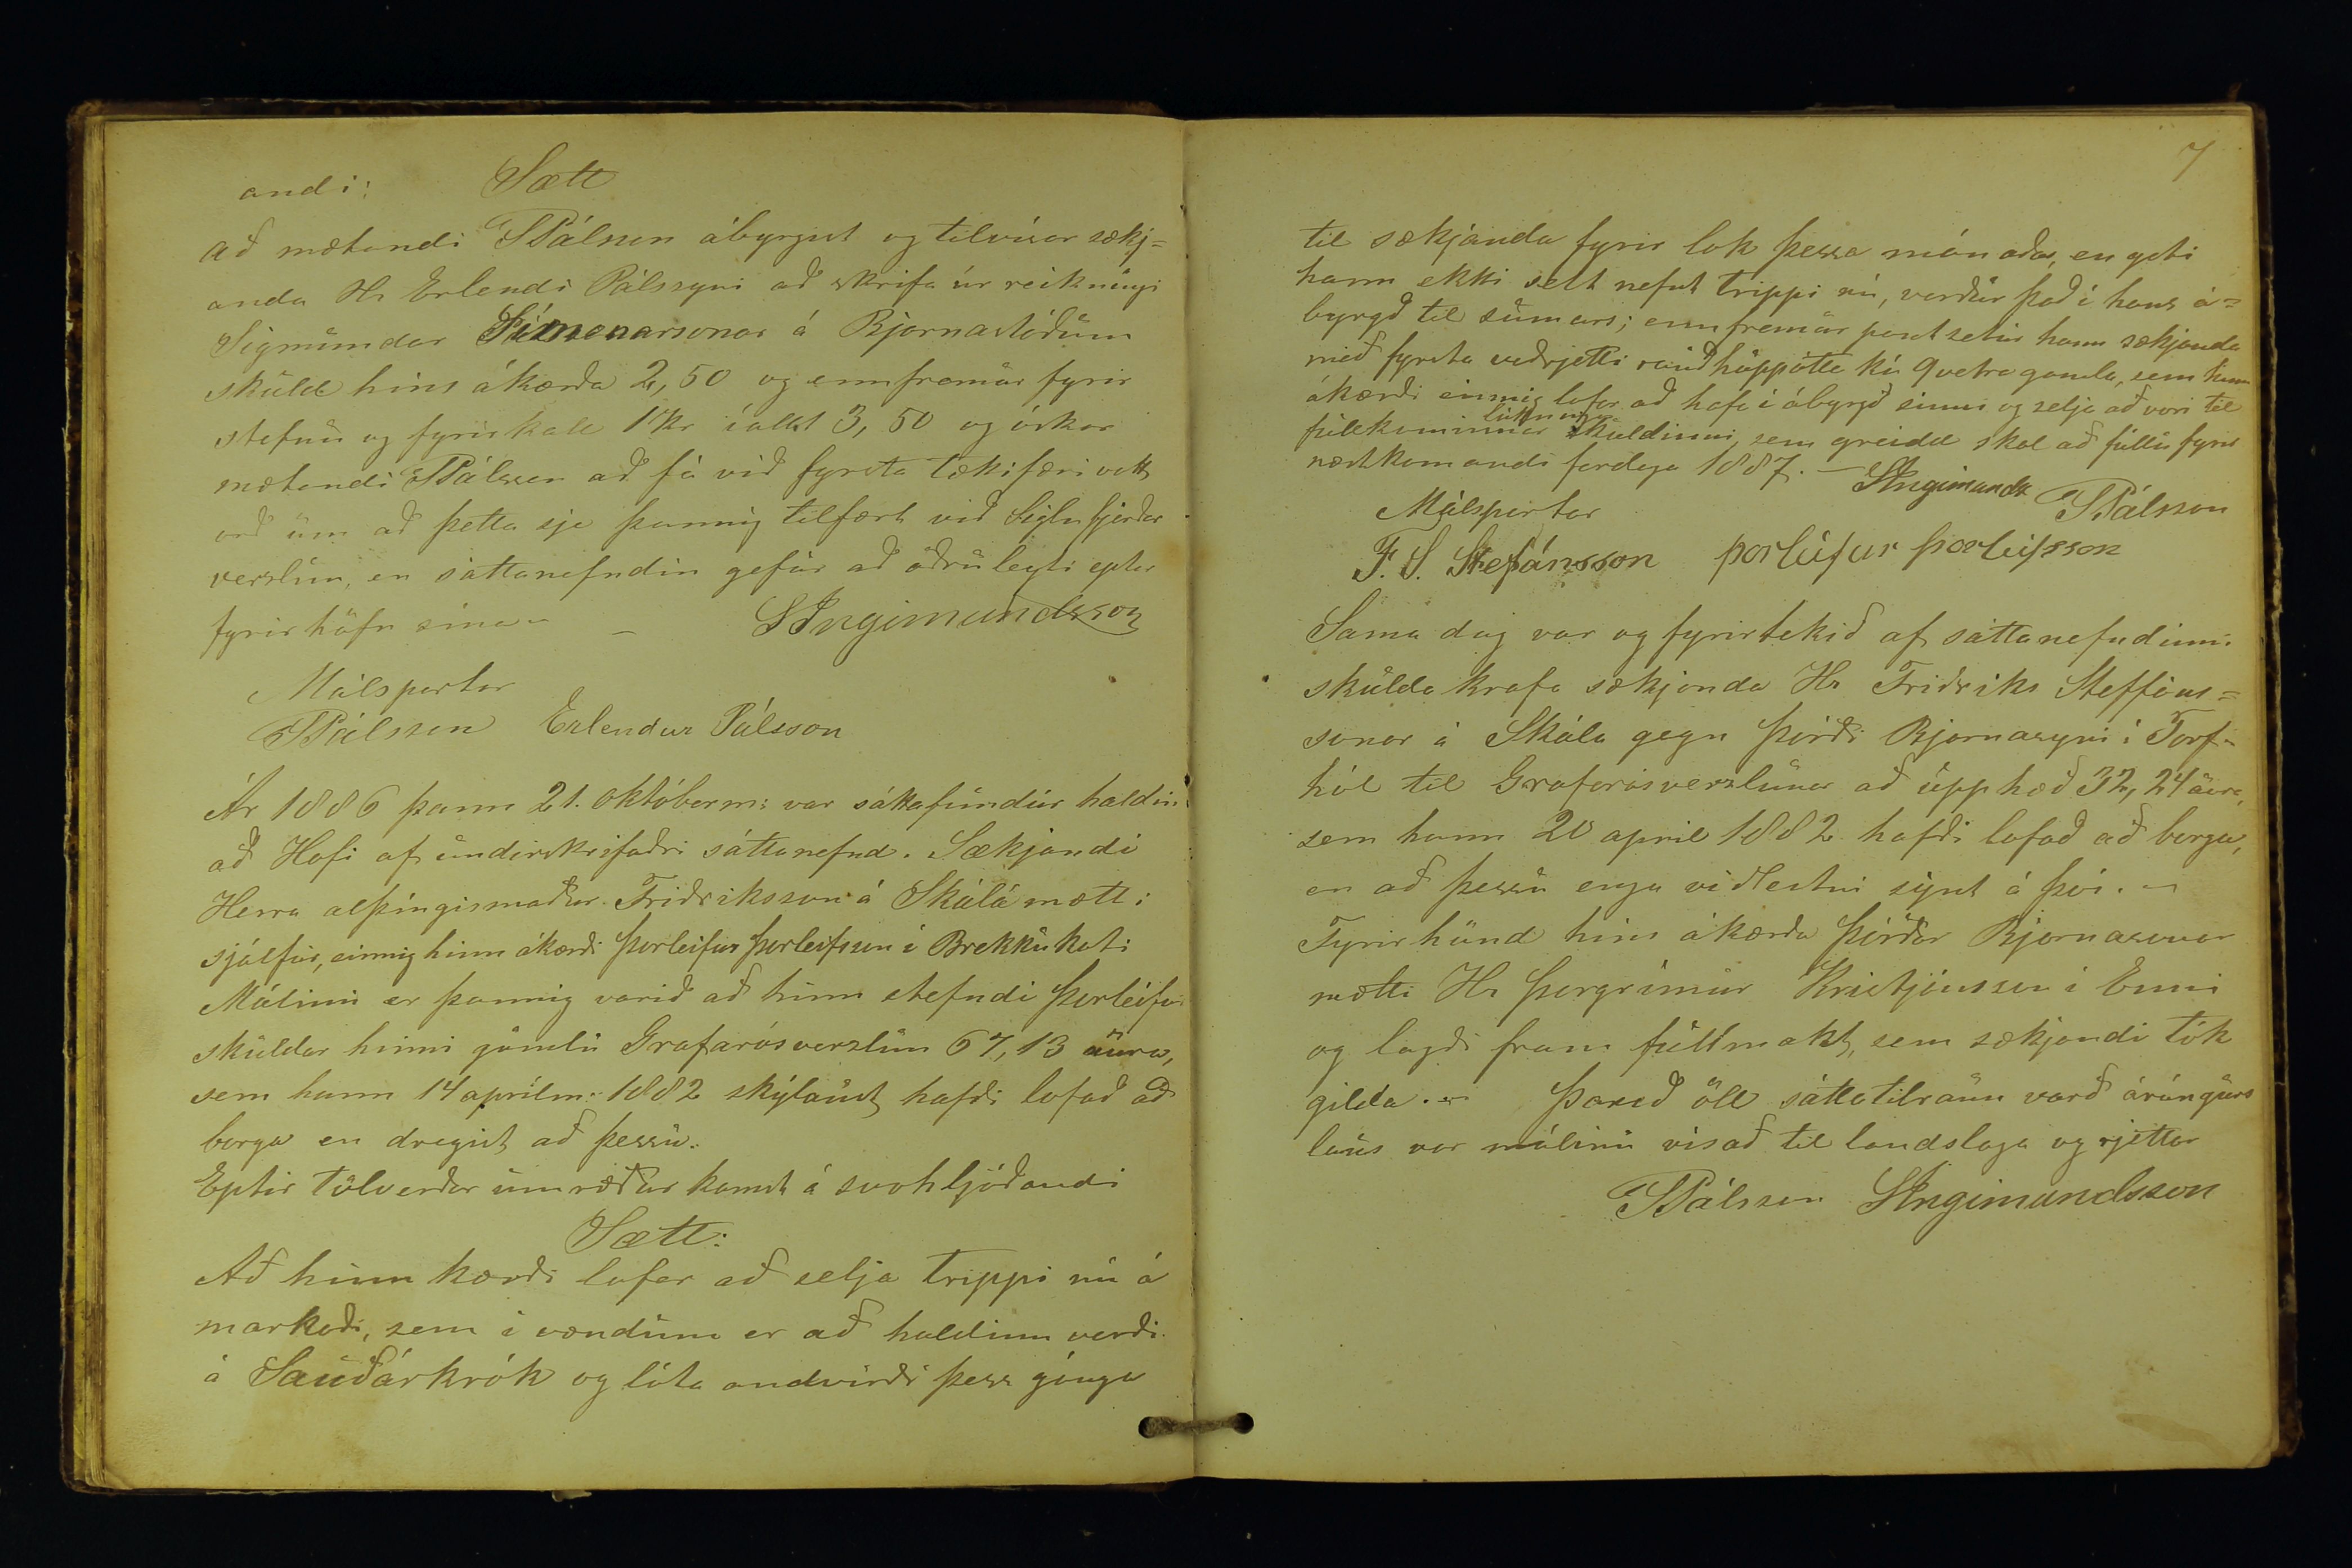 andi: Sætt
að mætandi TPálsson ábyrgist og tilvísar sækj=
anda Hr Erlendi Pálssyni að skrifa úr reikningi
Sigmundar Símonarsonar á Bjarnastöðum
skuld hins ákærða 2,50 og ennfremur fyrir
stefnu og fyrirkall 1 kr íallt 3,50 og óskar
mætandi TPálsson að fá við fyrsta tækifæri vott
orð um að þetta sje þannig tilfært við Siglufjarðar
verzlun, en sáttanefndin gefur að öðru leyti eptir
fyrirhöfn sína – SIngimundsson
Málspartar
TPálsson Erlendur Pálsson
Ár 1886 þann 21. októberm: var sáttafundur haldin
að Hofi af undirskrifaðri sáttanefnd. Sækjandi
Herra alþingismaður Friðriksson á Skálá mætti
sjálfur, einnig hinn ákærði Þorleifur Þorleifsson í Brekkukoti
Málinu er þannig varið að hinn stefndi Þorleifur
skuldar hinni gömlu Grafarósverzlun 67,13 aura,
sem hann 14 aprílm: 1882 skýlaust hafði lofað að
borga en dregist að þessu.
Eptir tölverðar umræður komst á svohljóðandi
Sætt:
Að hinn kærði lofar að selja trippi nú á
markaði, sem í vændum er að haldinn verði
á Sauðárkrók og láta andvirði þess gánga
7
til sækjanda fyrir lok þessa mánaðar, en geti
hann ekki selt nefnt trippi nú, verður það í hans á=
byrgð til sumars; ennfremur pantsetur hann sækjanda
með fyrsta veðrjetti rauðhuppótta kú 9 vetra gamla, sem hinn
ákærði einnig lofar að hafa í ábyrgð sinni og selja að vori til
fullkominnar lúkningar skuldinni, sem greidd skal að fullu fyrir
næstkomandi fardaga 1887. – SIngimundss TPálsson
Málspartar
F. S. Stefánsson Þorleifur Þorleifsson
Sama dag var og fyrirtekið af sáttanefndinni
skulda krafa sækjanda Hr Friðriks Steffáns=
sonar á Skálá gegn Þórði Bjarnasyni í Torf=
hól til Grafarósverzlunar að upphæð 32,24 aura,
sem hann 20 apríl 1882 hafði lofað að borga,
en að þessu enga viðleitni sýnt á því. –
Fyrir hönd hins ákærða Þórðar Bjarnasonar
mætti Hr Þorgrímur Kristjánsson í Enni
og lagði fram fullmakt, sem sækjandi tók
gilda. – Þareð öll sáttatilraun varð árángurs
laus var málinu vísað til landslaga og rjettar
TPálsson SIngimundsson